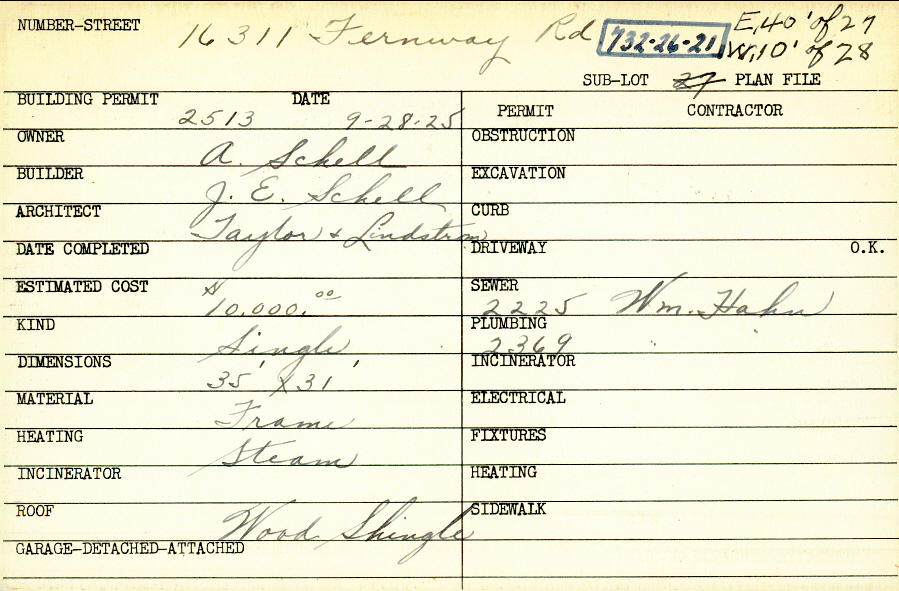 NUMBER-STREET 16311 Fernway Rd 732-26-21 E,40' of 27
W,10' of 28
SUB-LOT 27 PLAN FILE
BUILDING PERMIT 2513 DATE 9-28-25
OWNER A. Schell
BUILDER J. E. Schell
ARCHITECT Taylor + Lindstrom
DATE COMPLETED
ESTIMATED COST $10,000.00
KIND Single
DIMENSIONS 35' X 31'
MATERIAL Frame
HEATING Steam
INCINERATOR
ROOF Wood Shingle
GARAGE-DETACHED-ATTACHED
PERMIT CONTRACTOR
OBSTRUCTION
EXCAVATION
CURB
DRIVEWAY O.K.
SEWER 2225 Wm. Hahn
PLUMBING 2369 " "
INCINERATOR
ELECTRICAL
FIXTURES
HEATING
SIDEWALK